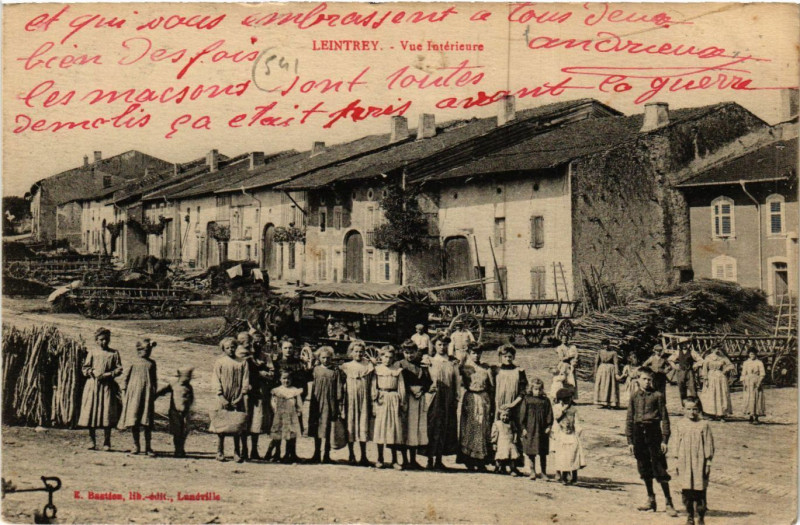 et qui vous embrassent a tous deux
bien des fois
andrieux
(541
LEINTREY. - Vue Intérieure
les maisons sont toutes
demolis ça etait pris avant la guerre
E. Bastien, lib.-édit., Lunéville